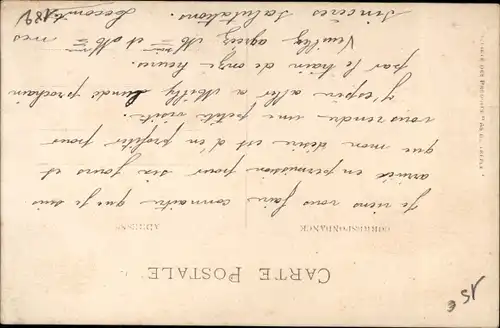 CARTE POSTALE
CORRESPONDANCE
ADRESSE
Je viens vous faire connaitre que je suis
arrivé en permission pour six jours et
que mon désir est d'en profiter pour
vous rendre une petite visite.
J'espère aller a Milly Lundi prochain
par le train de onze heures.
Veuillez agréez et mes
sincères salutations.
15 €